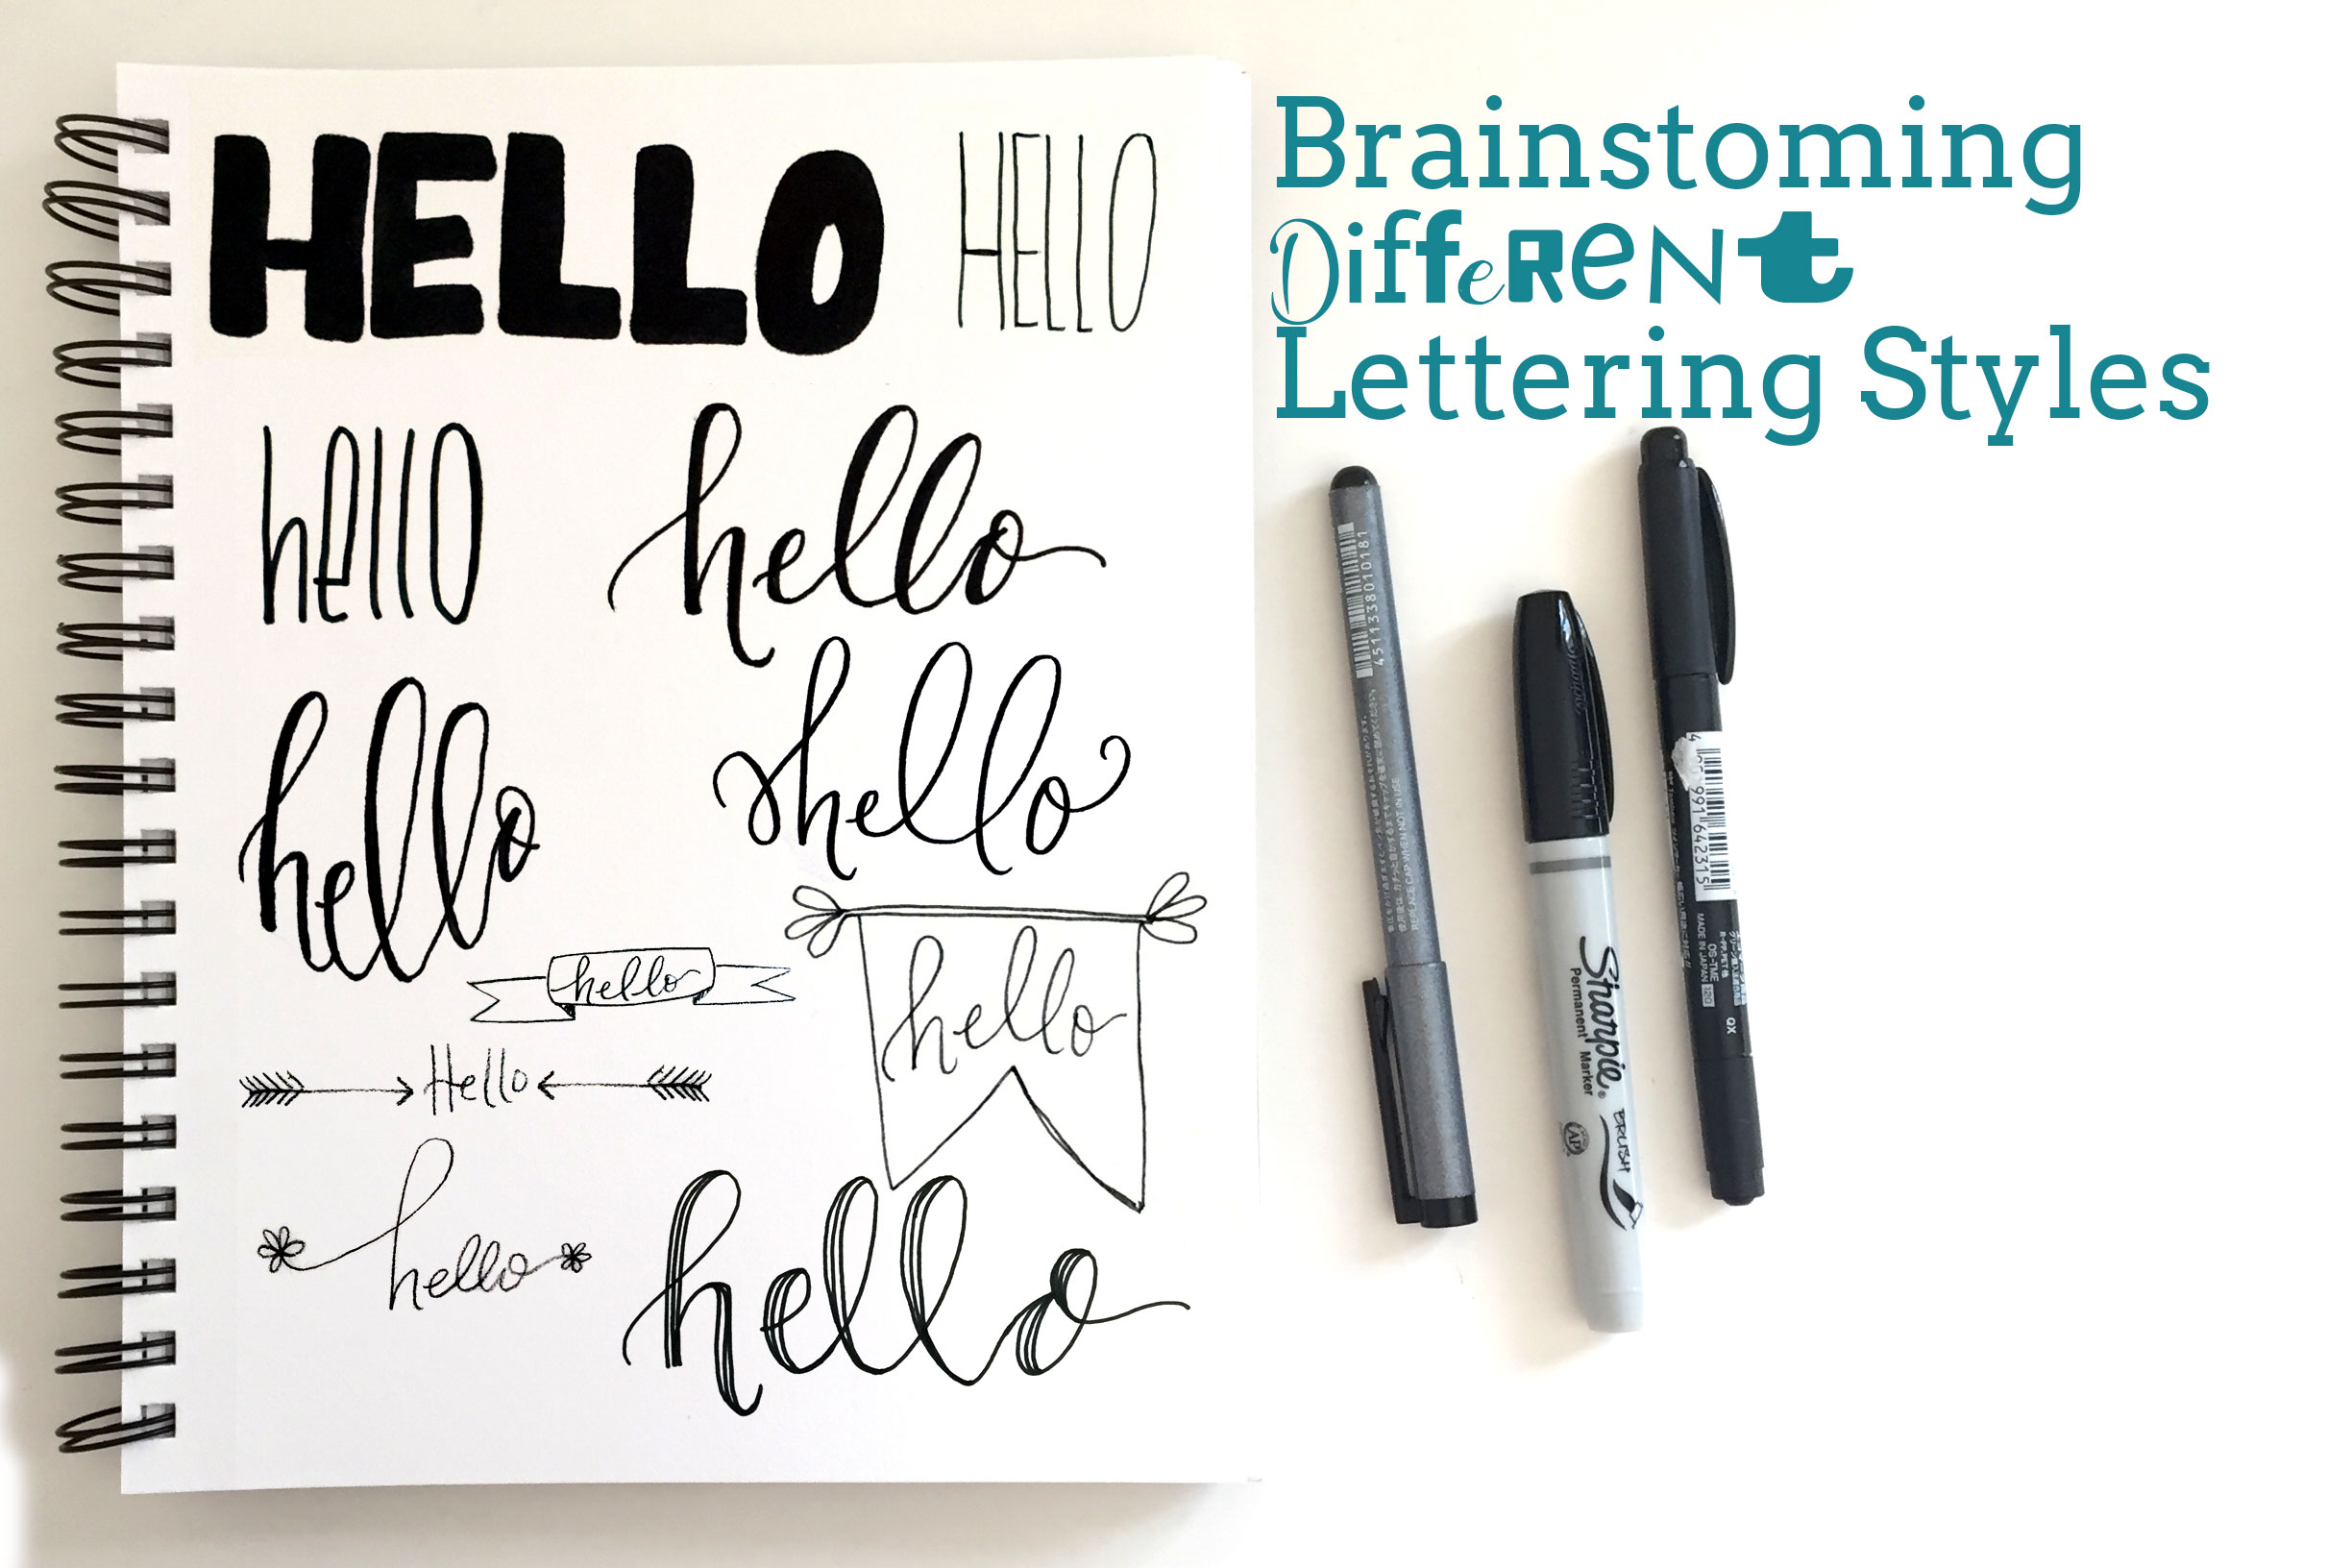 HELLO HELLO
hello hello
hello hello
hello
hello
Hello
hello
hello
Brainstoming
DiffeReNt
Lettering Styles
4511338010181
REPLACE CAP WHEN NOT IN USE
Sharpie®
Permanent Marker
BRUSH
AP
991642315
MADE IN JAPAN
OS-TME
120
QX